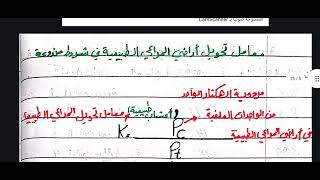 معامل تحويل أراضي المراعي الطبيعية في شروط مزروعة
مردودية الهكتار الواحد
من الواحدات العلفية
(أعشاب طبيعية)
معامل تحويل المراعي الطبيعية
في أراضي المراعي الطبيعية
K = Pc
Pt